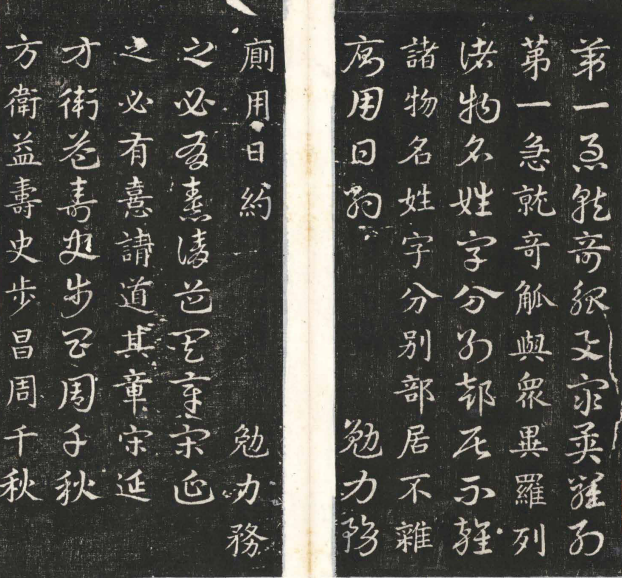 第一急就奇觚與衆異羅列
第一急就奇觚與衆異羅列
諸物名姓字分别部居不雜
諸物名姓字分别部居不雜
廁用日約 勉力務
廁用日約 勉力務
之必有憙請道其章宋延
之必有憙請道其章宋延
方衛益壽史步昌周千秋
方衛益壽史步昌周千秋